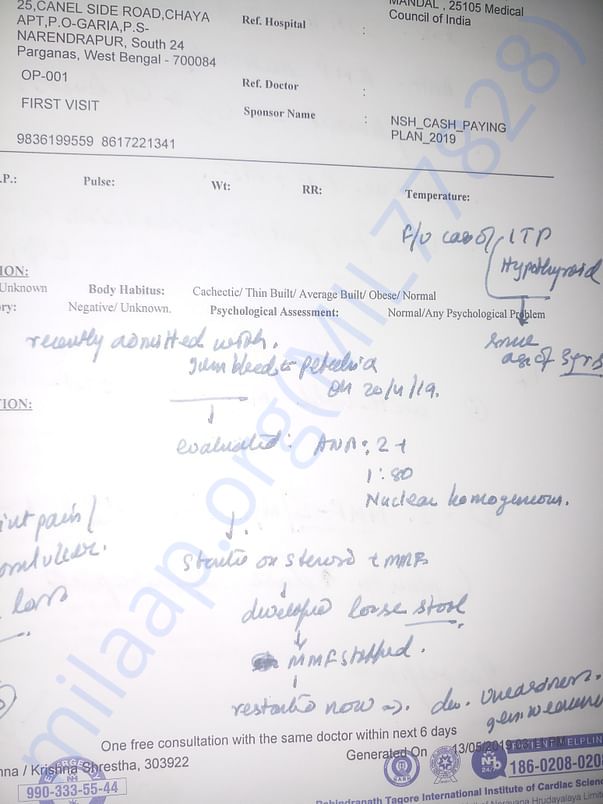 25,CANEL SIDE ROAD,CHAYA
APT,P.O-GARIA,P.S-
NARENDRAPUR, South 24
Parganas, West Bengal - 700084
OP-001
FIRST VISIT
9836199559 8617221341
Ref. Hospital :
MANDAL , 25105 Medical
Council of India
Ref. Doctor :
Sponsor Name : NSH_CASH_PAYING
PLAN_2019
.P.: Pulse: Wt: RR: Temperature:
F/U case of ITP
Hypothyroid
since
age of 3yrs
ION:
Unknown Body Habitus: Cachectic/ Thin Built/ Average Built/ Obese/ Normal
ry: Negative/ Unknown. Psychological Assessment: Normal/Any Psychological Problem
recently admitted with.
gum bleed petechia
on 20/4/19.
TION:
evaluated: ANA: 2+
1:80
Nuclear homogeneous.
int pain/
loss
started on steroid + MMF
developed loose stool
MMF stopped.
restarted now
One free consultation with the same doctor within next 6 days
Generated On 13/05/2019
nna / Krishna Shrestha, 303922
EMERGENCY
NH
990-333-55-44
NABH
NH
24/7
PATIENT HELPLINE
186-0208-0208
Rabindranath Tagore International Institute of Cardiac Scienc
Narayana Hrudayalaya Limite
milaap.org(MIL_77828)